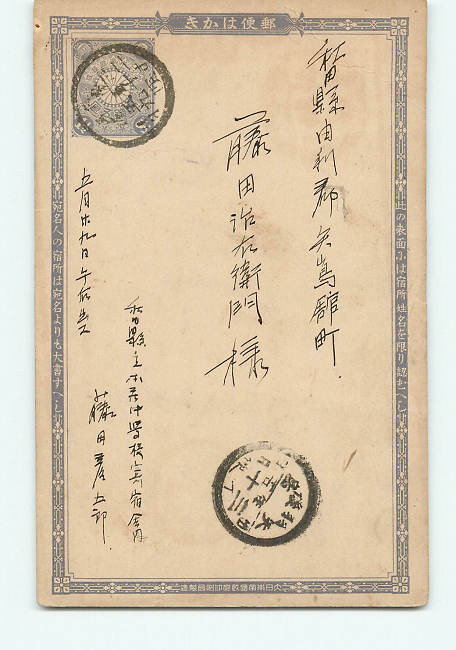 郵便はかき
此の表面には宿所姓名を限り認むへし
秋田縣由利郡矢嶌舘町
藤田治右衛門様
秋田縣立本荘中學校寄宿舎内
藤田彦五郎
五月廿九日午后
宛名人の宿所は宛名よりも大書すへし
大日本帝國政府印刷局製造